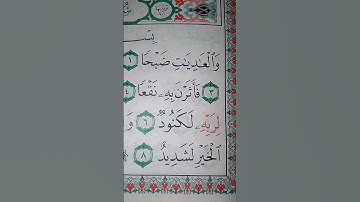 وَالْعَٰدِيَٰتِ ضَبْحًا ١
٣ فَأَثَرْنَ بِهِۦ نَقْعًا ٤
لِرَبِّهِۦ لَكَنُودٌ ٦ وَ
الْخَيْرِ لَشَدِيدٌ ٨